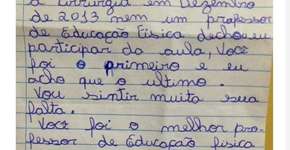 a cirurgia em Dezembro
de 2013 nem um professor
de Educação Fisica deichou eu
participar da aula, Você
foi o primeiro e eu
acho que o ultimo.
Vou sintir muita sua
falta.
Você foi o melhor pro-
fessor de Educação fisica